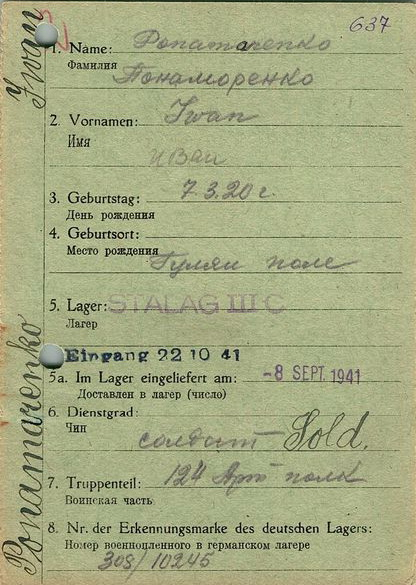 637
1. Name: Ponamarenko
Фамилия Понаморенко
2. Vornamen: Iwan
Имя Иван
3. Geburtstag: 7.3.20 г.
День рождения
4. Geburtsort:
Место рождения Гуляи поле
5. Lager: STALAG III C
Лагер
Eingang 22 10 41
5a. Im Lager eingeliefert am: -8 SEPT. 1941
Доставлен в лагер (число)
6. Dienstgrad:
Чин солдат Sold.
7. Truppenteil: 124 Арт полк
Воинская часть
8. Nr. der Erkennungsmarke des deutschen Lagers:
Номер военнопленного в германском лагере
308/10245
Ponamarenko Iwan